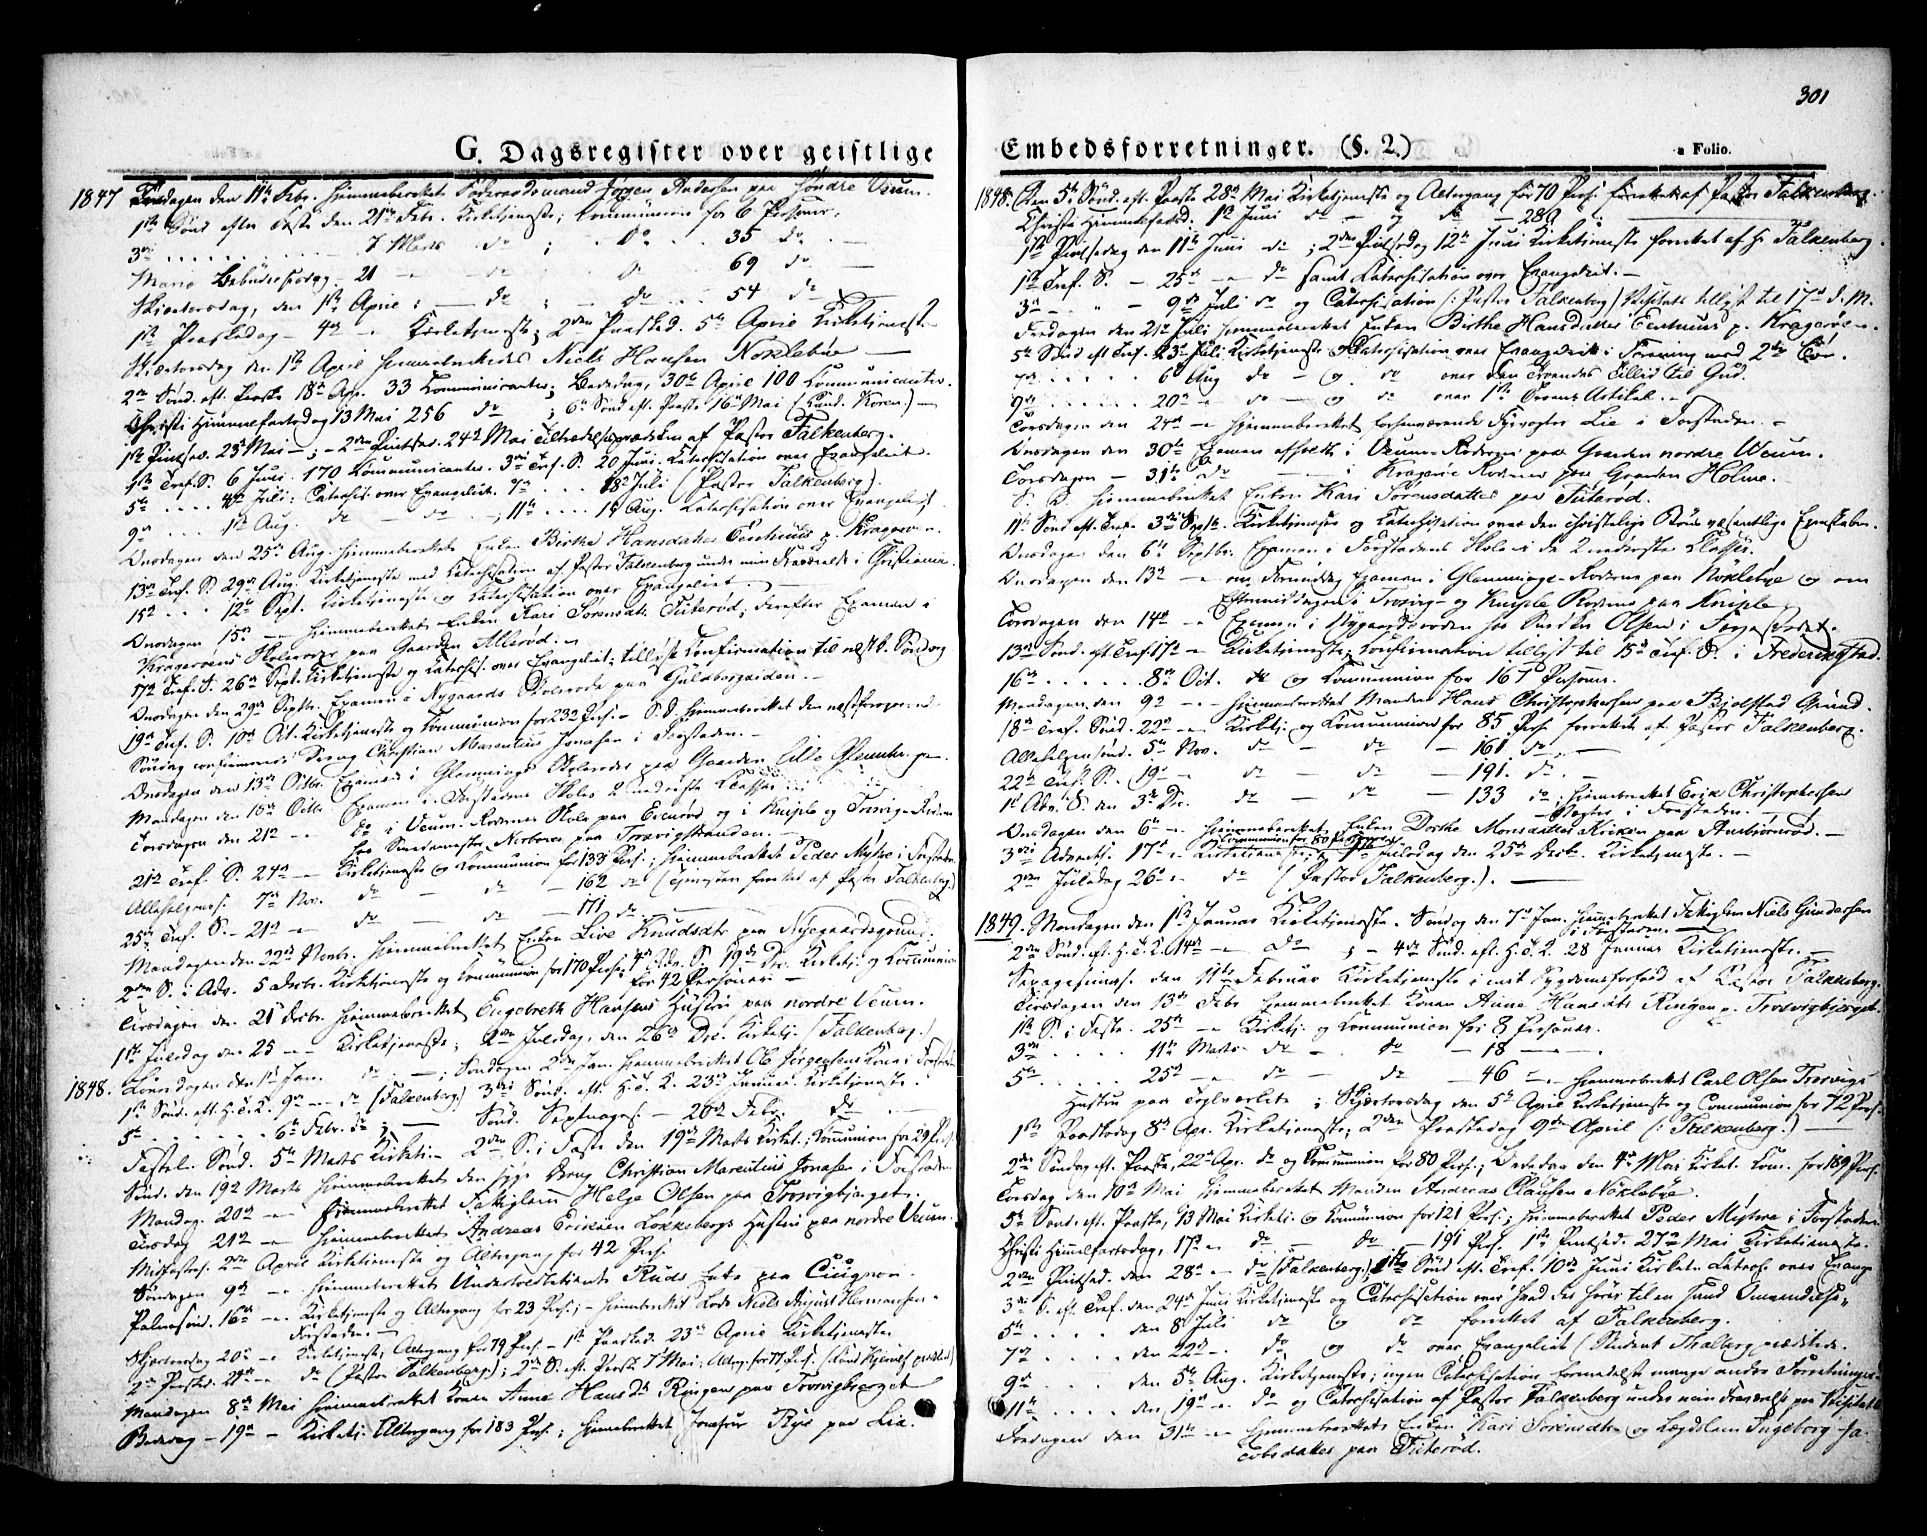 301
G. Dagsregister over geistlige
Embedsforretninger. (§. 2.)
a Folio.
1847 den 11te Febr. hjemmeberettet Jørgen Andersen paa søndre Veum.
1ste Sønd efter Faste den 21de Febr. Kirketjeneste; Kommunion for 6 Personer.
3die 7 Marts do ; do 35 do
Mariæ Bebudelsesdag – 21 – do do 69 do
Skjærtorsdag, den 1ste April ; do ; do 54 do
1ste Paaskedag – 4de – Kirketjeneste; 2den Paasked. 5te April Kirketjeneste
Skjærtorsdag den 1ste April hjemmeberettedes Niels Hansen Nøklebye
2den Sønd. eft. Paaske 18de Apr. 33 Kommunicanter; Bededag, 30te April 100 Kommunicanter.
Christi Himmelfartsdag 13 Mai 256 do ; 6te Sønd eft. Paaske 16de Mai (Cand. Koren.) –
1ste Pintsed. 23de Mai – ; – 2den Pintsed. 24de Mai Tiltrædelsesprædiken af Pastor Falkenberg.
1ste Tref. S. 6 Juni. 170 Kommunicanter. 3die Tref. S. 20 Juni. Catechisation over Evangeliet.
5te 4de Juli; Catechis. over Evangeliet. 7de 18de Juli (Pastor Falkenberg).
9de 1ste Aug. do – do – ; 11te 15 Aug. Catechisation over Evangeliet
Onsdagen den 25de Aug. hjemmeberettet Enken Birthe Hansdatter p. Kragerøen.
13de Tref. S. 29de Aug. Kirketjeneste med Catechisation af Pastor Falkenberg under min Fraværelse i Christiania.
15de 12te Sept. Kirketjeneste og Catechisation over Evangeliet.
Onsdagen 15de – hjemmeberettet Enken Kari Sørensdatter Titerød; derefter Examen i
Kragerøens Skolerode paa Gaarden Allerød.
17de Tref. S. 26de Sept. Kirketjeneste og Catechis. over Evangeliet; tillyst Confirmation til næste Søndag
Onsdagen den 29de Septbr. Examen i Nygaards Skolerode paa Guldborgsiden.
19de Tref. S. 10de Oct. Kirketjeneste og Kommunion for 232 Pers. – S.D. hjemmeberettet den
Søndag confirmerede Dreng Christian Marentius Jonasen i Forstaden.
Onsdagen den 13de Octbr. Examen i Glemminge Skolerode paa Gaarden Lille Glemminge
Mandagen den 18de Octbr. Examen i Forstadens Skoles 2 nederste Classer
Torsdagen den 21de – do i Veum Rodernes Skole paa Evenrød og i Kniple og Trosvig Roderne
hos paa Trosvigstranden.
21de Tref. S. 24de – Kirketjeneste og Kommunion for 133 Pers.; hjemmeberettet Peder Myhre i Forstaden.
Allehelgens. 7de Nov. do – do – 162 do (Tjenesten forrettet af Pastor Falkenberg.)
25de Tref. S. – 21de – do – do – 171 do
Mandagen den 22de Novbr. hjemmeberettet Enken Live Knudsdatr paa Nygaardsgrund.
2den S. i Adv. 5 Decbr. Kirketjeneste og Communion for 170 Pers.; 4de Adv. S. 19de Dec. Kirketj. og Kommunion
for 42 Personer –
Tirsdagen den 21 Decbr. hjemmeberettet Engebreth Hansens Hustru paa nordre Veum.
1ste Juledag den 25 – Kirketjeneste; 2den Juledag, den 26de Dec. Kirketj. (Falkenberg.)
1848. Løverdagen den 1ste Jan. do – ; Søndagen 2den Jan. hjemmeberettet Ole Jørgensens Kone i Forstaden
1ste Sønd. eft. H.T.K. 9de – do (Falkenberg.) 3die Sønd. eft. H.T.K. 23de Januar. Kirketjeneste.
5te 6te Febr. do ; – Sønd. Septuages. – 20de Febr. do
Fastel. Sønd. 5te Marts Kirketj. – 2den S. i Faste den 19de Marts Kirket.; Kommunion for 29 Pers.
Sønd. den 19de Marts hjemmeberettet den syge Dreng Christian Marentius Jonasen i Forstaden
Mandag. 20de – hjemmeberettet Helge Olsen paa Trosvigbjerget.
Tirsdag 21de – hjemmeberettet Andreas Eriksen Lokkebergs Hustru paa nordre Veum.
Midfastes. 2den April Kirketjeneste og Altergang for 42 Pers.
Søndagen 9de – hjemmeberettet Ruds Enke paa
Palmesønd. 16de – Kirketjeneste og Altergang for 23 Pers.; – hjemmeberettet Lods Niels August Hermansen
Forstaden.
Skjærtorsdag 20de – Kirketjeneste; Altergang for 79 Pers. – 1ste Paasked. 23de April Kirketjeneste
2den Paasked. 24de – do (Pastor Falkenberg); 2den S. eft. Paaske 7 Mai; Alterg. for 77 Pers. (Cand. Hjerulf prædiket)
Mandagen 8de Mai hjemmeberettet Konen Anne Hansdr Ringen paa Trosvigbjerget
Bededag – 19de – Kirketj. Altergang for 183 Pers.; hjemmeberettet Jomfru Rye paa Lie.
1848. Den 5te Sønd. eft. Paaske 28de Mai Kirketjeneste og Altergang for 70 Pers. forrettet af Pastor Falkenberg.
Christi Himmelfartsd. 1ste Juni do – og do – 280
1ste Pintsedag den 11te Juni do ; 2den Pintsedag 12te Juni Kirketjeneste forrettet af Hr Falkenberg.
1ste Tref. S. – 25de – do samt Catechisation over Evangeliet. –
3die – 9de Juli do og Catechisation (: Pastor Falkenberg) Visitats tillyst til 17de d. M.
Fredagen den 21de Juli hjemmeberettet Enken Birthe Hansdatter p. Kragerøen.
5te Sønd eft Tref. 23de Juli Kirketjeneste og Catechisation over Evangeliet i Forening med 2den Art.
7de 6te Aug do – og do over den Troendes Tillid til Gud.
9de 20de – do – og do over 1ste Troens Artikel.
Torsdagen den 24de – hjemmeberettet forhenværende Lie i Forstaden. –
Onsdagen den 30te Examen afholdt i Veum-Roderne paa Gaarden nordre Veum.
Torsdagen – 31te do i Kragerøe Roderne paa Gaarden Holme.
S. D. hjemmeberettet Enken Kari Sørensdatter paa Titerød.
11te Sønd eft Tref. 3die Septb. Kirketjeneste og Catechisation over den christelige Troes væsentlige Egenskaber.
Onsdagen den 6te Septbr. Examen i Forstadens Skole i de 2 nederste Classer.
Onsdagen den 13de – om Formiddag Examen i Glemminge-Roderne paa Nøklebye og om
Eftermiddagen i Trosvig- og Kniple Roderne paa Kniple.
Torsdagen den 14de – Examen i Nygaardsroden hos Snedker Olsen i Forstaden.
13de Sønd. eft Tref. 17de – Kirketjeneste; Confirmation tillyst til 15de Tref. S. i Frederikstad.
16de 8de Oct. do og Communion for 167 Personer.
Mandagen den 9de – hjemmeberettet Manden Hans Christophersen paa Bjølstad Grund.
18de Tref. Sønd. 22de – Kirketj. og Communion for 85 Pers. forrettet af Pastor Falkenberg.
Allehelgensønd. 5te Nov. do – do – 161 do –
22de Tref. S. (19de – do – do – 191. do. –
1ste Adv. S. den 3die Dec. do – do – 133 do; hjemmeberettet Erik Christophersen
Vegter i Forstaden.
Onsdagen den 6te – hjemmeberettet Enken Dorthe Monsdatter Kirken paa Ambjørnrød. –
Communion for 80 Personer
3die Advents. 17de – Kirketjeneste; 1ste Juledag den 25de Decbr. Kirketjeneste. –
2den Juledag 26de – do (Pastor Falkenberg.). –
1849. Mandagen den 1ste Januar Kirketjeneste. Søndag den 7de Jan. hjemmeberettet Niels Gundersen
i Forstaden. –
2den Sønd. eft. H.T.K. 14de – do ; – 4de Sønd. eft. H.T.K. 28 Januar Kirketjeneste. –
Sexagesimas. den 11te Februar Kirketjeneste i mit Sygdomsforfald af Pastor Falkenberg.
Tirsdagen den 13de Febr. hjemmeberettet Konen Anne Hansdtr Ringen p. Trosvigbjerget.
1ste S. i Faste. 25de – Kirketj. og Kommunion for 8 Personer.
3die 11te Marts do – do – 18 –
5te 25de – do – do – 46 – hjemmeberettet Carl Olsen Trosvigs
Hustru paa Teglverket; Skjærtorsdag den 5te April Kirketjeneste og Communion for 72 Pers.
1ste Paaskedag 8de Apr. Kirketjeneste; 2den Paaskedag 9de April (: Falkenberg.:) –
2den Søndag eft. Paaske, 22de Apr. do og Communion for 80 Pers.; Bededag den 4de Mai Kirket. Kom. for 189 Pers.
Torsdag den 10de Mai hjemmeberettet Manden Andreas Clausen Nøklebye.
5te Sønd. eft. Paaske, 13 Mai Kirketj. og Kommunion for 121 Pers.; hjemmeberettet Peder Myhre i Forstaden.
Christi Himmelfartsdag, 17de – do – do – 191 Pers. 1ste Pintsed. 27de Mai Kirketjeneste.
2den Pintsed. den 28de – do (Falkenberg.); 1ste Sønd eft. Tref. 10de Juni Kirket. Catech. over Evang.
3die S. eft. Tref. den 24de Juni Kirketjeneste og Catechisation over hvad der hører til en sand Omvendelse.
5te den 8de Juli do og do forrettet af Falkenberg.
7de den 22de – do og do over Evangeliet (Student Thalberg prædikede.
9de den 5te Aug. Kirketjeneste; ingen Catechisation formedelst mange andre Forretninger.
11te den 19de – do og Catechisation af Pastor Falkenberg under min Fraværelse paa Visitats
Fredagen den 31te – hjemmeberettet Enken Kari Sørensdatter og Lægdslem Ingeborg Ja-
cobsdatter paa Titerød.